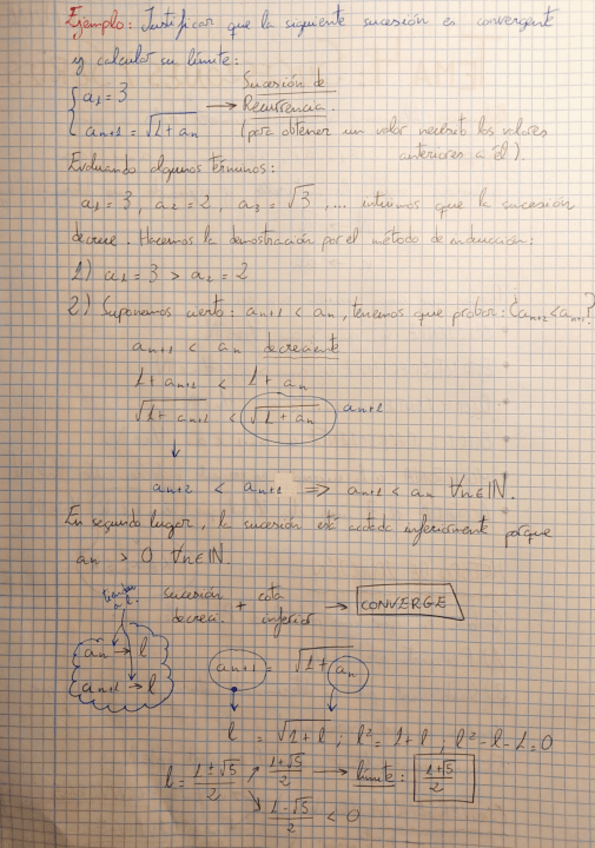 Ejemplo: Justificar que la siguiente sucesión es convergente
y calcular su límite:
{ a₁ = 3
{ aₙ₊₁ = √(1 + aₙ) → Sucesión de Recurrencia.
(para obtener un valor necesito los valores
anteriores a él)
Evaluando algunos términos:
a₁ = 3, a₂ = 2, a₃ = √3, ... intuimos que la sucesión
decrece. Hacemos la demostración por el método de inducción:
1) a₁ = 3 > a₂ = 2
2) Suponemos cierto: aₙ₊₁ < aₙ, tenemos que probar: ¿aₙ₊₂ < aₙ₊₁?
aₙ₊₁ < aₙ decreciente
1 + aₙ₊₁ < 1 + aₙ
√(1 + aₙ₊₁) < √(1 + aₙ) aₙ₊₁
↓
aₙ₊₂ < aₙ₊₁ ⇒ aₙ₊₁ < aₙ ∀n∈ℕ.
En segundo lugar, la sucesión está acotada inferiormente porque
aₙ > 0 ∀n∈ℕ.
tienden a l.
sucesión decreci. + cota inferior → CONVERGE
aₙ → l
aₙ₊₁ → l
aₙ₊₁ = √(1 + aₙ)
l = √(1 + l) ; l² = 1 + l ; l² - l - 1 = 0
l = (1 ± √5)/2 ↗ (1+√5)/2 → límite: (1+√5)/2
↘ (1-√5)/2 < 0